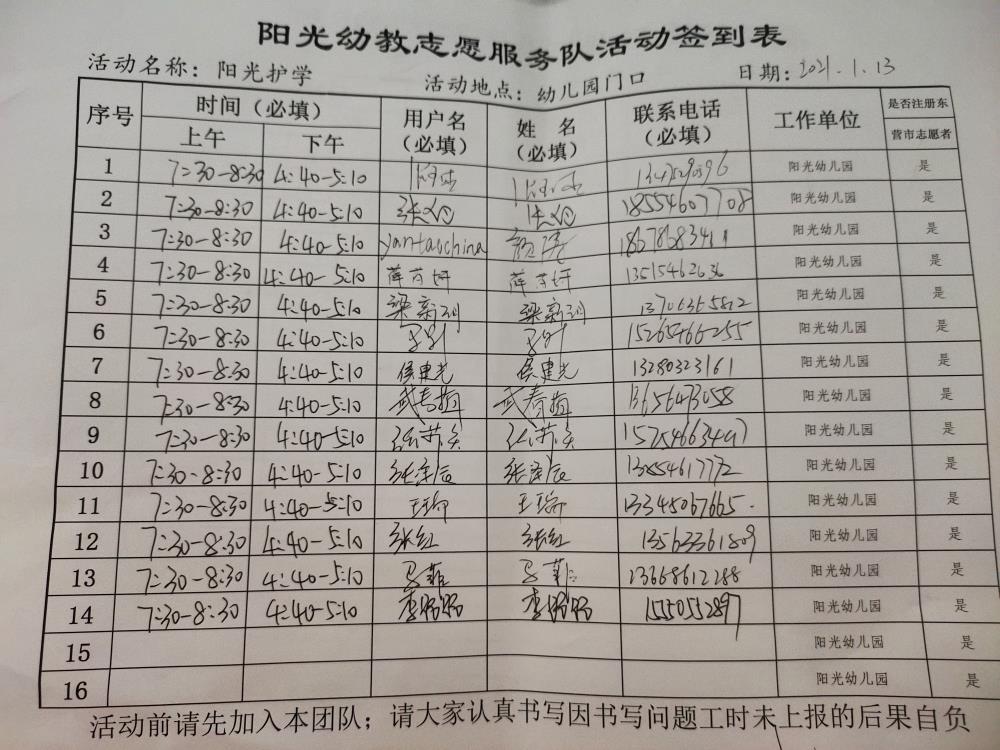 阳光幼教志愿服务队活动签到表
活动名称：阳光护学 活动地点：幼儿园门口 日期：2021.1.13
序号 时间（必填） 用户名（必填） 姓 名（必填） 联系电话（必填） 工作单位 是否注册东营市志愿者
上午 下午
1 7:30-8:30 4:40-5:10 阳光幼儿园 是
2 7:30-8:30 4:40-5:10 18554607708 阳光幼儿园 是
3 7:30-8:30 4:40-5:10 yantaochina 阳光幼儿园 是
4 7:30-8:30 4:40-5:10 薛芳妍 薛芳妍 13515462636 阳光幼儿园 是
5 7:30-8:30 4:40-5:10 梁新刚 梁新刚 阳光幼儿园 是
6 7:30-8:30 4:40-5:10 15265466255 阳光幼儿园 是
7 7:30-8:30 4:40-5:10 侯建光 侯建光 13280323161 阳光幼儿园 是
8 7:30-8:30 4:40-5:10 武春苗 武春苗 13656473058 阳光幼儿园 是
9 7:30-8:30 4:40-5:10 阳光幼儿园 是
10 7:30-8:30 4:40-5:10 张泽辰 张泽辰 阳光幼儿园 是
11 7:30-8:30 4:40-5:10 王瑞 王瑞 13345067665. 阳光幼儿园 是
12 7:30-8:30 4:40-5:10 张红 张红 13563361809 阳光幼儿园 是
13 7:30-8:30 4:40-5:10 马菲 马菲 13668612288 阳光幼儿园 是
14 7:30-8:30 4:40-5:10 李明明 李明明 阳光幼儿园 是
15 阳光幼儿园 是
16 阳光幼儿园 是
活动前请先加入本团队；请大家认真书写因书写问题工时未上报的后果自负